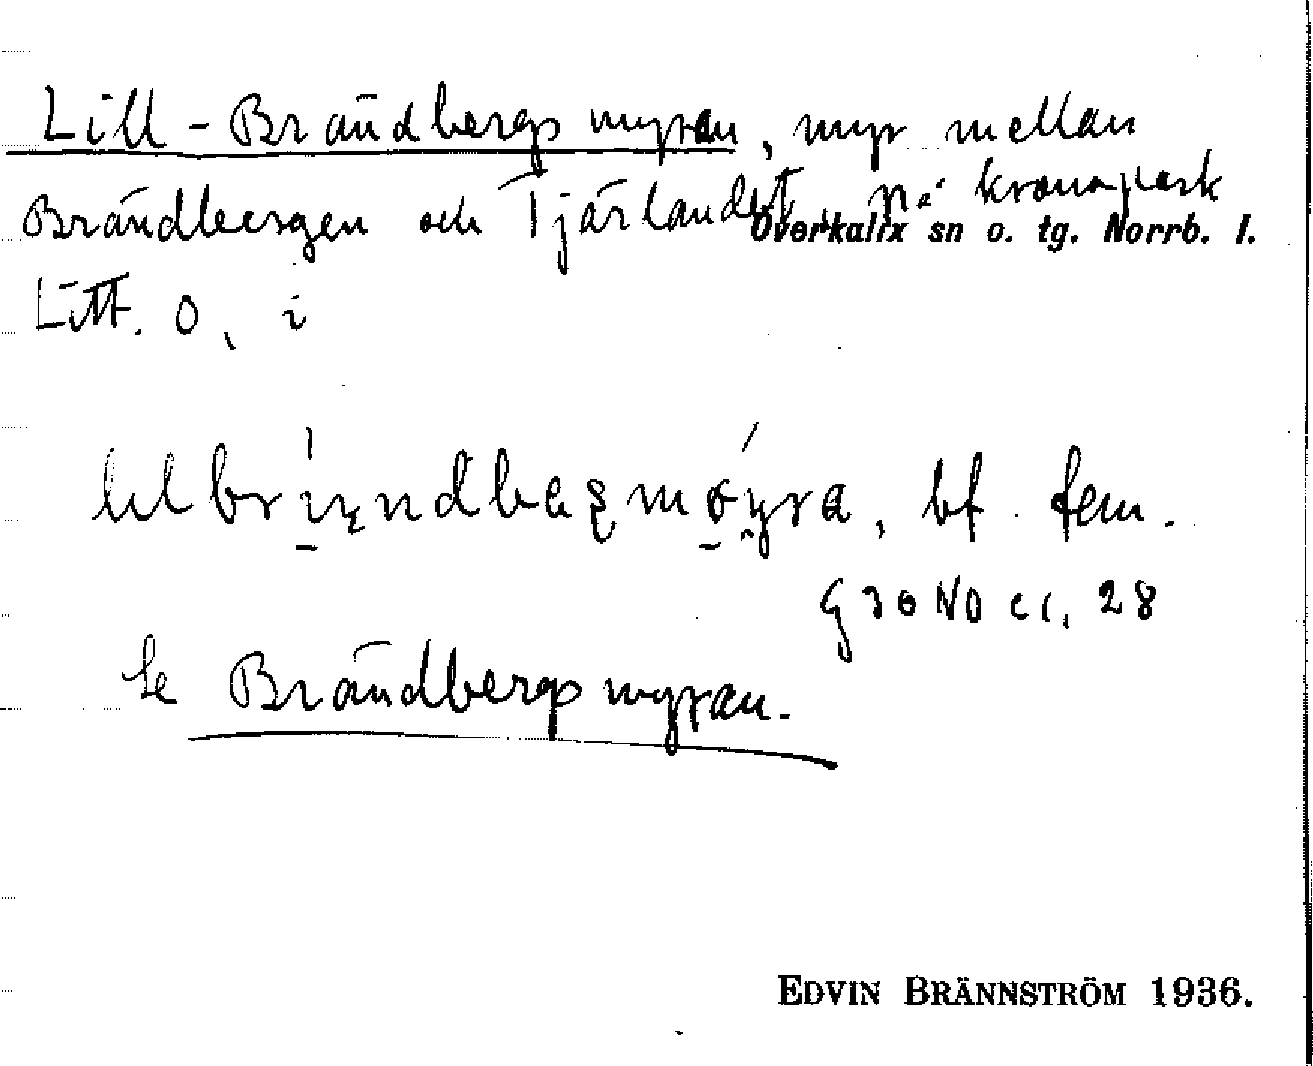 Lill-Brändbergsmyran, myr mellan
Brändbergen och Tjärlandet, på kronopark
Överkalix sn o. tg. Norrb. l.
Litt. O, i
bf. fem.
G 30 NO cc, 28
Se Brändbergsmyran.
EDVIN BRÄNNSTRÖM 1936.